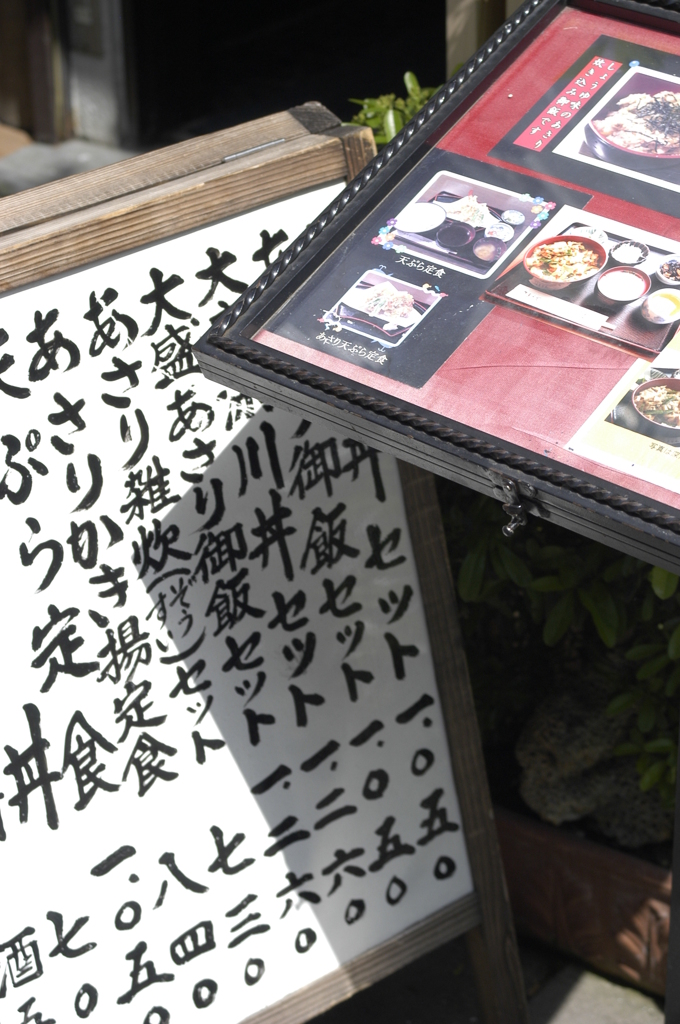 しょうゆ味のあさり
炊き込み御飯です
天ぷら定食
あさり天ぷら定食
写真は
丼セット 一.〇五〇
御飯セット 一.〇五〇
川丼セット 一.二六〇
大盛あさり御飯セット 一.二六〇
あさり雑炊(ぞうすい)セット 七三〇
あさりかき揚定食 八四〇
天ぷら定食 一.〇五〇
丼 七〇
酒 五